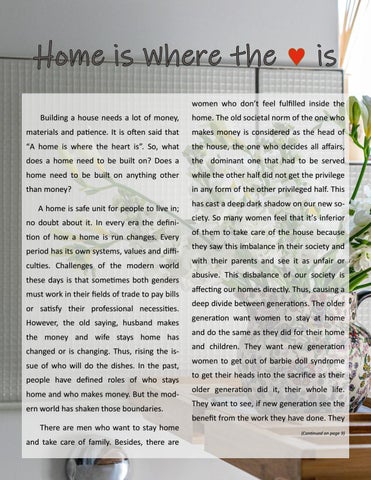 Home is where the ♥ is
Building a house needs a lot of money,
materials and patience. It is often said that
“A home is where the heart is”. So, what
does a home need to be built on? Does a
home need to be built on anything other
than money?
A home is safe unit for people to live in;
no doubt about it. In every era the defini-
tion of how a home is run changes. Every
period has its own systems, values and diffi-
culties. Challenges of the modern world
these days is that sometimes both genders
must work in their fields of trade to pay bills
or satisfy their professional necessities.
However, the old saying, husband makes
the money and wife stays home has
changed or is changing. Thus, rising the is-
sue of who will do the dishes. In the past,
people have defined roles of who stays
home and who makes money. But the mod-
ern world has shaken those boundaries.
There are men who want to stay home
and take care of family. Besides, there are
women who don’t feel fulfilled inside the
home. The old societal norm of the one who
makes money is considered as the head of
the house, the one who decides all affairs,
the dominant one that had to be served
while the other half did not get the privilege
in any form of the other privileged half. This
has cast a deep dark shadow on our new so-
ciety. So many women feel that it’s inferior
of them to take care of the house because
they saw this imbalance in their society and
with their parents and see it as unfair or
abusive. This disbalance of our society is
affecting our homes directly. Thus, causing a
deep divide between generations. The older
generation want women to stay at home
and do the same as they did for their home
and children. They want new generation
women to get out of barbie doll syndrome
to get their heads into the sacrifice as their
older generation did it, their whole life.
They want to see, if new generation see the
benefit from the work they have done. They
(Continued on page 9)